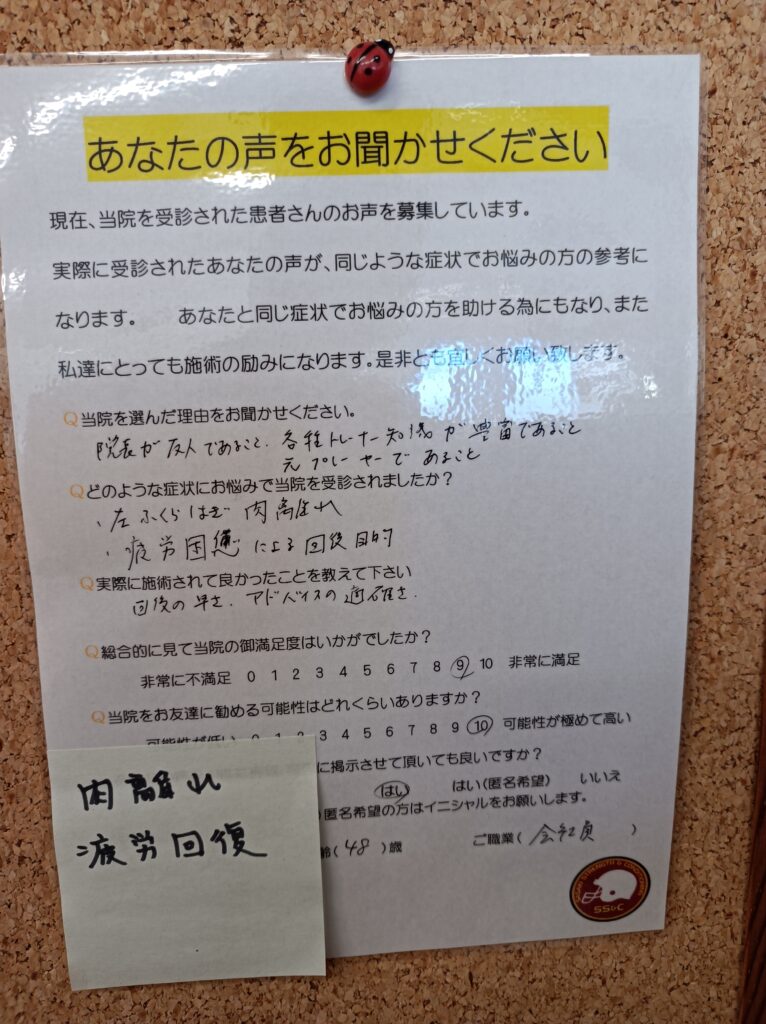 あなたの声をお聞かせください
現在、当院を受診された患者さんのお声を募集しています。
実際に受診されたあなたの声が、同じような症状でお悩みの方の参考に
なります。 あなたと同じ症状でお悩みの方を助ける為にもなり、また
私達にとっても施術の励みになります。是非とも宜しくお願い致します。
Q当院を選んだ理由をお聞かせください。
院長が友人であること、各種トレーナー知識が豊富であること
元プレーヤーであること
Qどのような症状にお悩みで当院を受診されましたか?
、左ふくらはぎ 肉離れ
、疲労困憊による回復目的
Q実際に施術されて良かったことを教えて下さい
回復の早さ、アドバイスの適確さ、
Q総合的に見て当院の御満足度はいかがでしたか?
非常に不満足 0 1 2 3 4 5 6 7 8 9 10 非常に満足
Q当院をお友達に勧める可能性はどれくらいありますか?
可能性が低い 0 1 2 3 4 5 6 7 8 9 10 可能性が極めて高い
に掲示させて頂いても良いですか?
はい はい(匿名希望) いいえ
)匿名希望の方はイニシャルをお願いします。
齢( 48 )歳 ご職業( 会社員 )
肉離れ
疲労回復
STRENGTH & CONDITIONING
SS&C